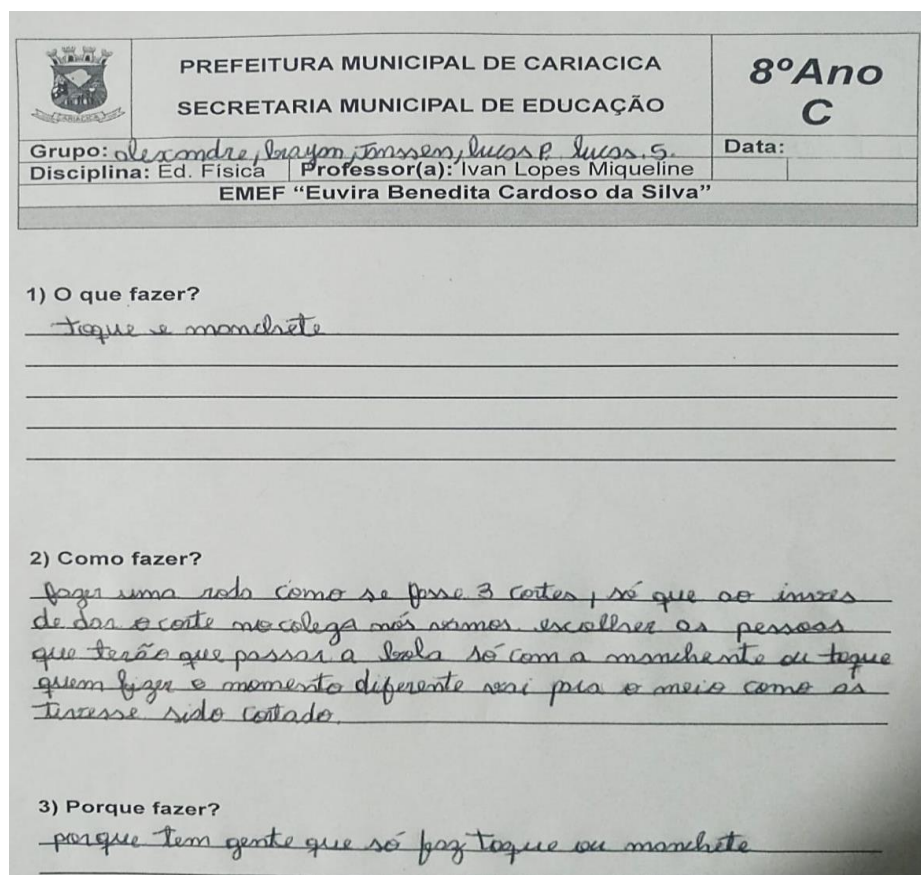 PREFEITURA MUNICIPAL DE CARIACICA
SECRETARIA MUNICIPAL DE EDUCAÇÃO
8ºAno
C
CARIACICA
Grupo: alexandre, brayan, Janssen, lucas P. lucas. S.
Data:
Disciplina: Ed. Física Professor(a): Ivan Lopes Miqueline
EMEF “Euvira Benedita Cardoso da Silva”
1) O que fazer?
toque e manchete
2) Como fazer?
fazer uma roda como se fosse 3 cortes, só que ao inves
de dar o corte no colega nós vamos escolher as pessoas
que terão que passar a bola só com a manchente ou toque
quem fizer o momento diferente vai pra o meio como as
tivesse sido cortado.
3) Porque fazer?
porque tem gente que só faz toque ou manchete